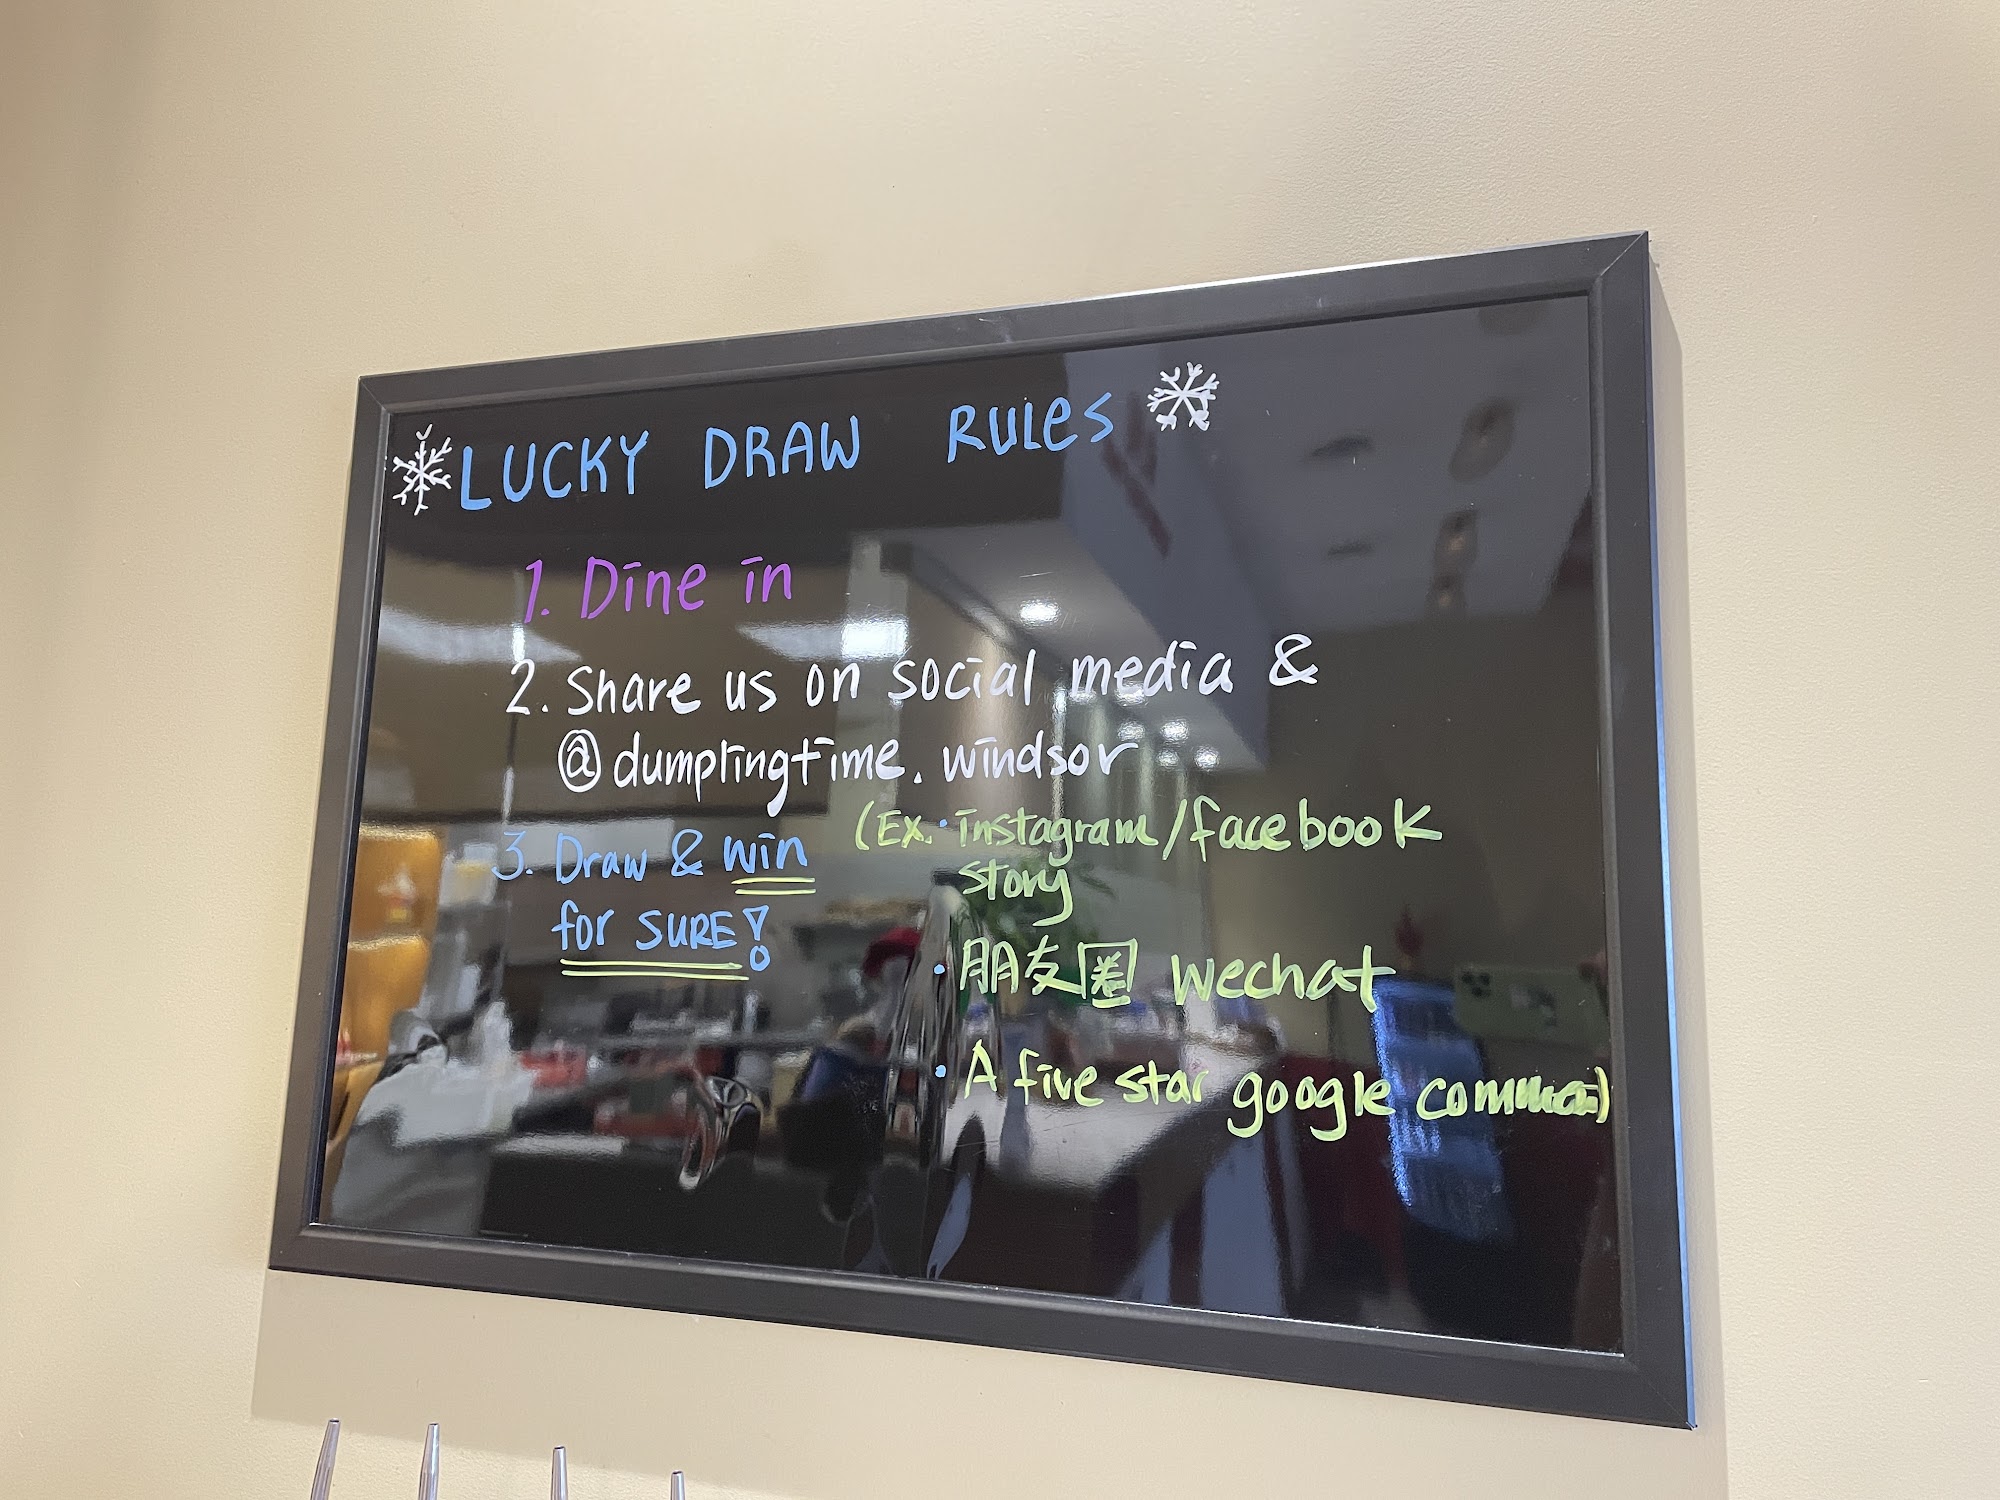 LUCKY DRAW RULES
1. Dine in
2. Share us on social media &
@dumplingtime.windsor
3. Draw & win
for SURE!
(Ex. · instagram/facebook
story
· 朋友圈 wechat
· A five star google comment)